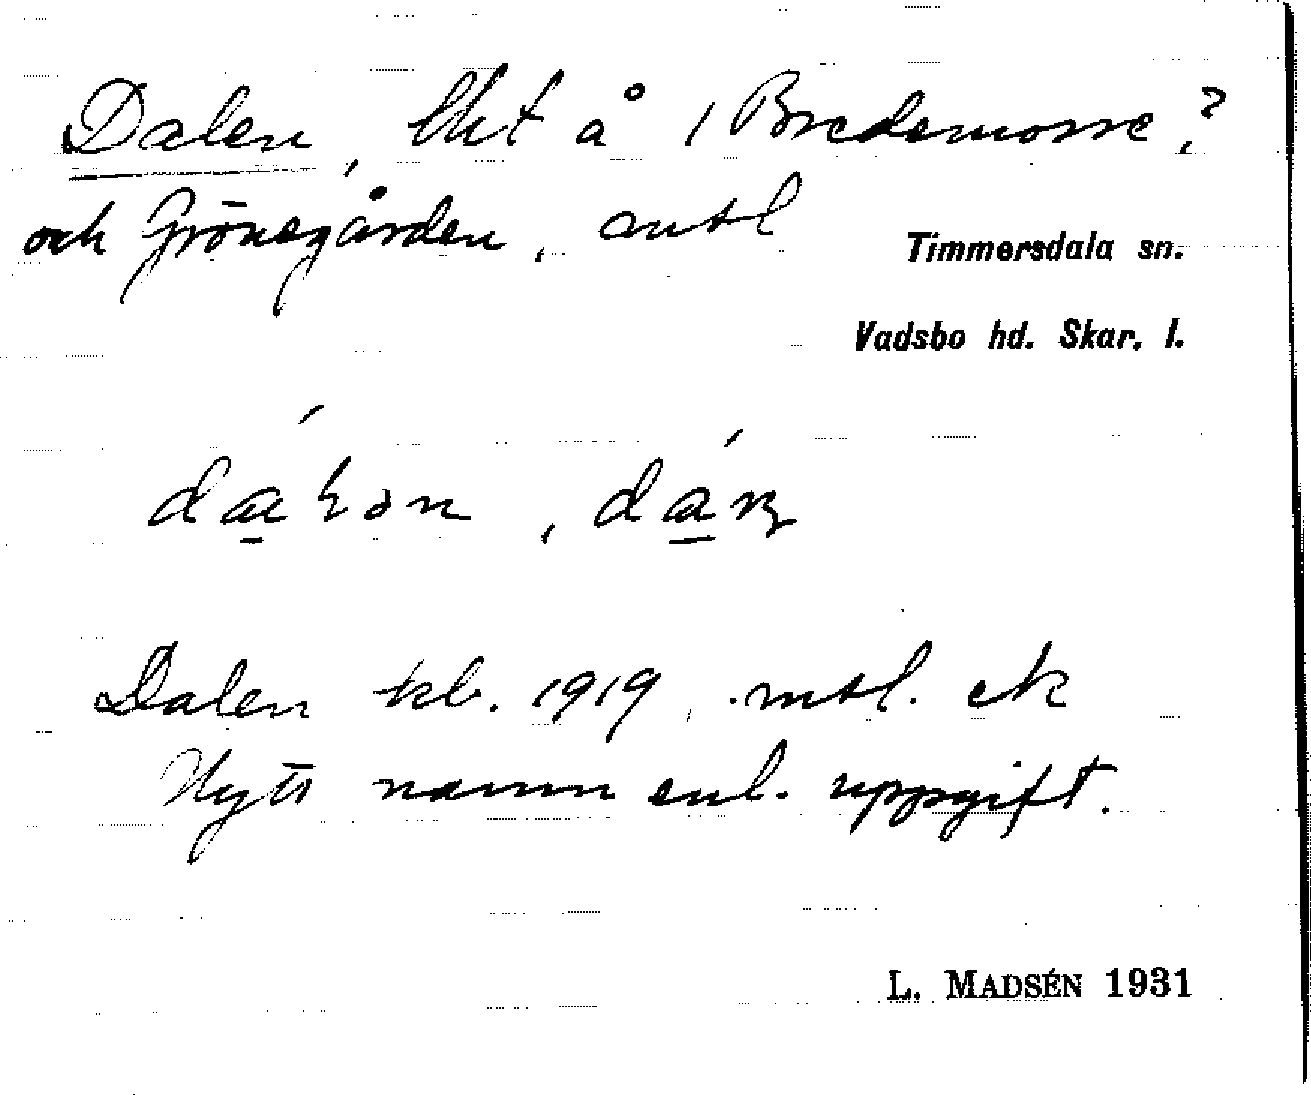 Dalen, lht å 1 Bredemosse,?
och Grönegården, antl
Timmersdala sn.
Vadsbo hd. Skar. l.
Dalen kb. 1919, mtl. ek
Nytt namn enl. uppgift.
L. MADSÉN 1931